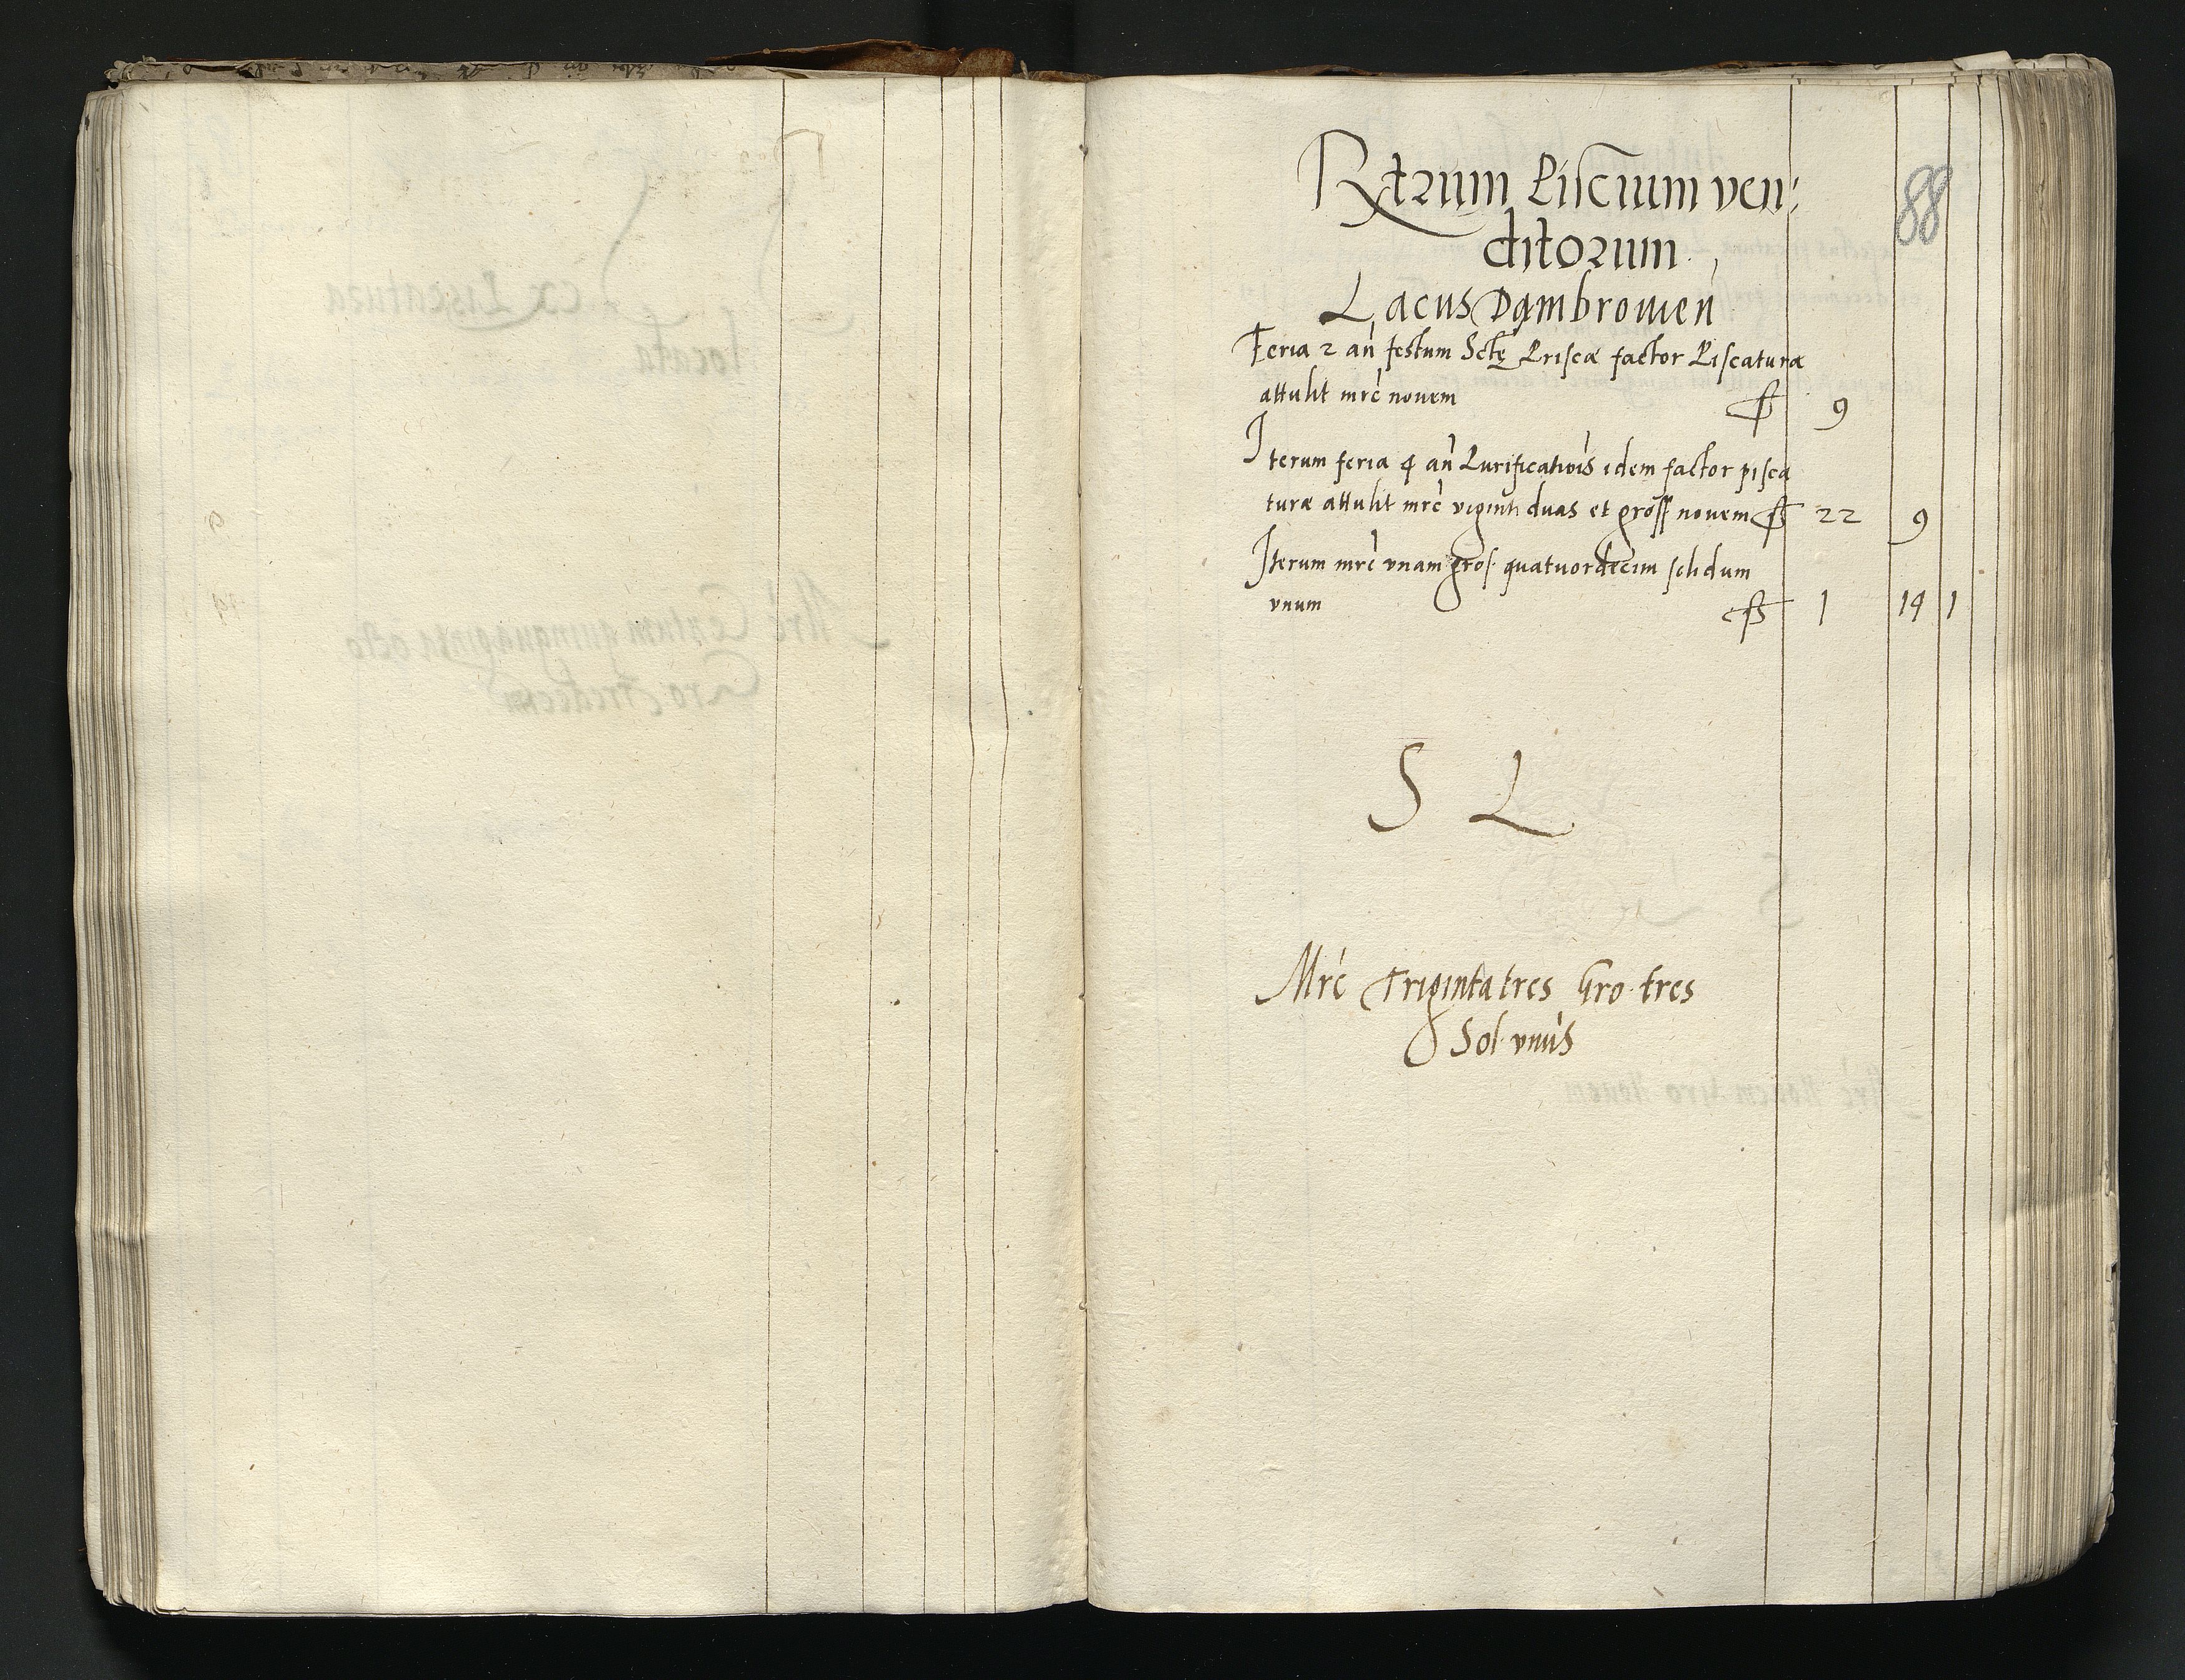 88
Rtrum Piscium ven:
ditorum.
Lacus Dąmbrowien
Feria 2 an festum Sctę Priscæ factor Piscaturæ
attulit mrc novem ƒ 9
Iterum feria 4 an Purificatiois idem factor pisca
turæ attulit mrc viginti duas et gross novem ƒ 22 9
Iterum mrc vnam gros. quatuordecim solidum
vnum ƒ 1 14 1
S L
Mrc Triginta tres Gro. tres
Sol. vnus